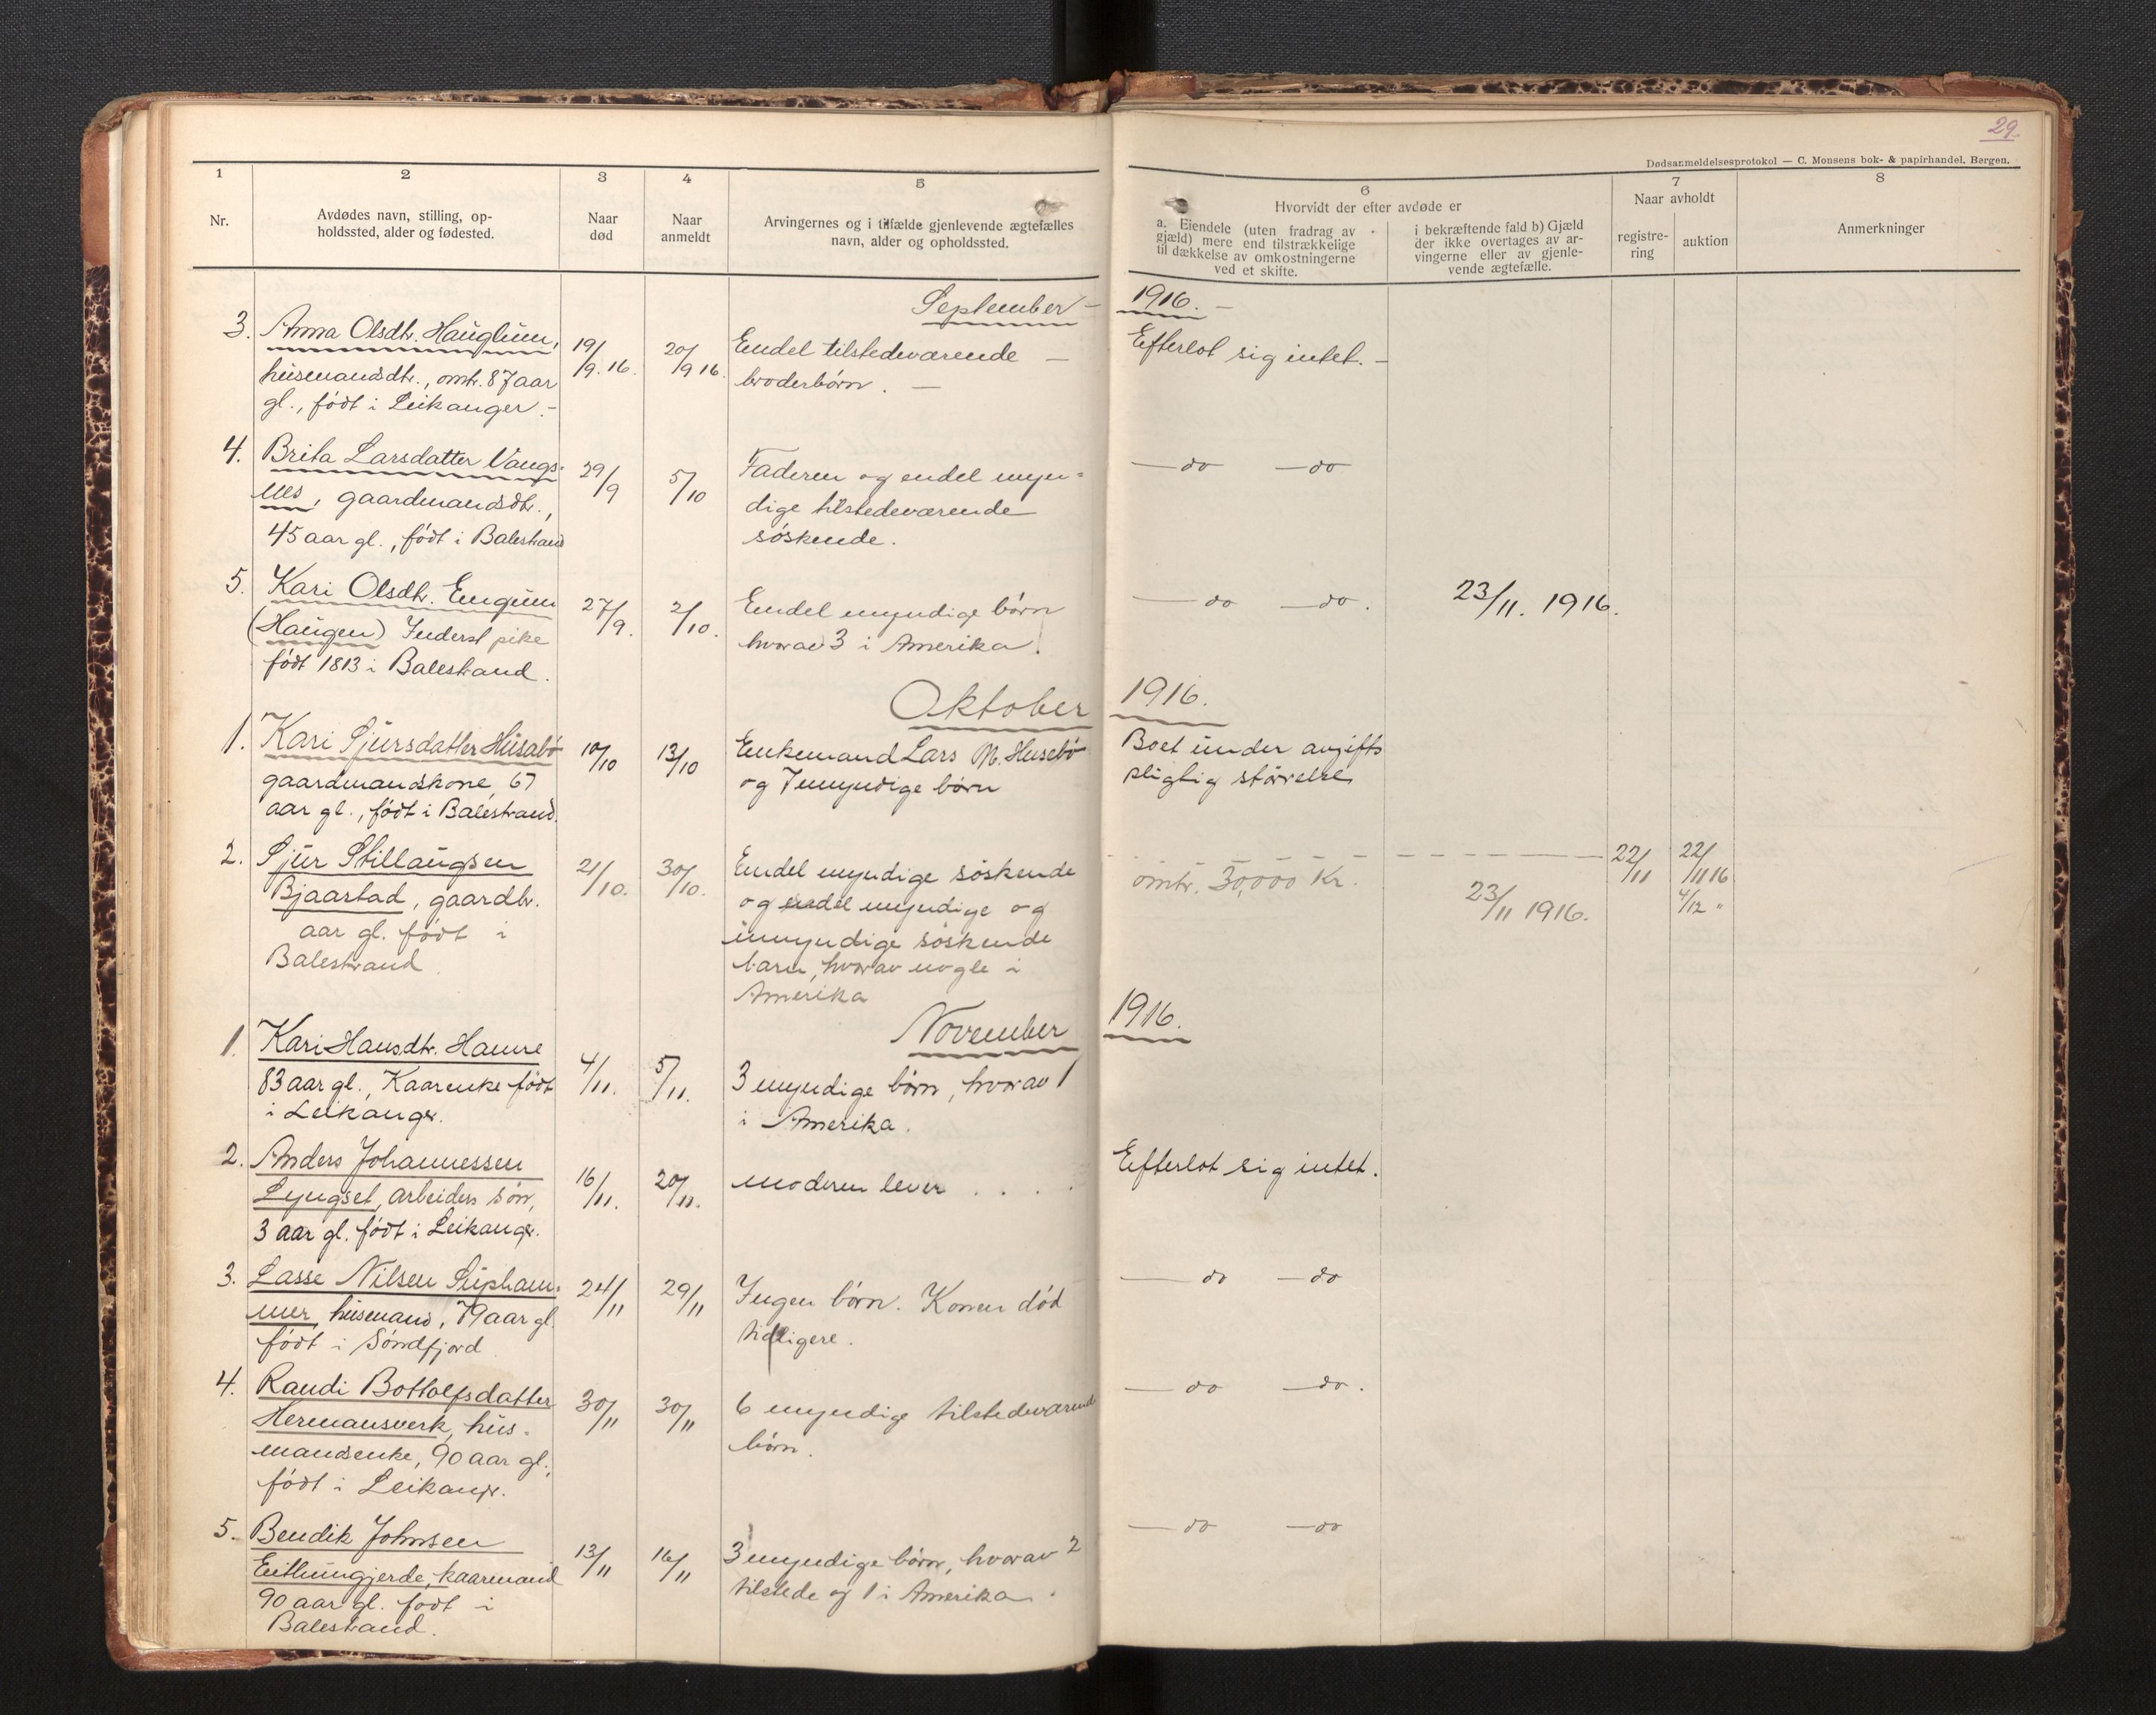 29.
Dødsanmeldelsesprotokol — C. Monsens bok- & papirhandel, Bergen.
1
2
3
4
5
6
7
8
Nr.
Avdødes navn, stilling, op-
holdssted, alder og fødested.
Naar
død
Naar
anmeldt
Arvingernes og i tilfælde gjenlevende ægtefælles
navn, alder og opholdssted.
Hvorvidt der efter avdøde er
a. Eiendele (uten fradrag av
gjæld) mere end tilstrækkelige
til dækkelse av omkostningerne
ved et skifte.
i bekræftende fald b) Gjæld
der ikke overtages av ar-
vingerne eller av gjenle-
vende ægtefælle.
Naar avholdt
registre-
ring
auktion
Anmerkninger
September – 1916. –
3. Anna Olsdtr. Hauglum,
husmandsdtr., omtr. 87 aar
gl., født i Leikanger. –
19/9. 16.
20/9 16.
Endel tilstedeværende —
broderbørn. —
Efterlot sig intet. –
4. Brita Larsdatter Vangs-
nes, gaardmandsdtr.,
45 aar gl., født i Balestrand
29/9
5/10
Faderen og endel myn=
dige tilstedeværende
søskende.
— do — do
5. Kari Olsdtr. Engum
(Haugen) Inderst pike
født 1813 i Balestrand.
27/9.
2/10.
Endel myndige børn
hvorav 3 i Amerika.
— do — do.
23/11. 1916.
Oktober 1916.
1. Kari Sjursdatter Husabø
gaardmandskone, 67
aar gl., født i Balestrand.
10/10
13/10
Enkemand Lars M. Husebø
og 7 myndige børn
Boet under avgifts
pligtig størrelse
2. Sjur Stillaugsen
Bjaastad, gaardbr.
aar gl. født i
Balestrand
21/10.
30/10.
Endel myndige søskende
og endel myndige og
umyndige søskende
barn, hvorav nogle i
Amerika
omtr. 30,000 Kr.
23/11 1916.
22/11
22/11 16
4/12 "
November 1916.
1. Kari Hansdtr. Hamre
83 aar gl., Kaarenke født
i Leikangr.
4/11.
5/11.
3 myndige børn, hvorav 1
i Amerika.
2. Anders Johannessen
Lyngset, arbeiders søn,
3 aar gl. født i Leikangr.
16/11.
20/11.
moderen lever . . . .
Efterlot sig intet.
3. Lasse Nilsen Supham-
mer, husmand, 79 aar gl.
født i Søndfjord
24/11
29/11
Ingen børn. Konen død
tidligere.
— do — do
4. Randi Bottolfsdatter
Hermansverk, hus-
mandsenke, 90 aar gl.,
født i Leikangr.
30/11
30/11
6 myndige tilstedeværend
børn.
— do — do.
5. Bendik Johnsen
Eithungjerde, kaarmand
90 aar gl. født i
Balestrand.
13/11
16/11
3 myndige børn, hvorav 2
tilstede og 1 i Amerika.
— do — do